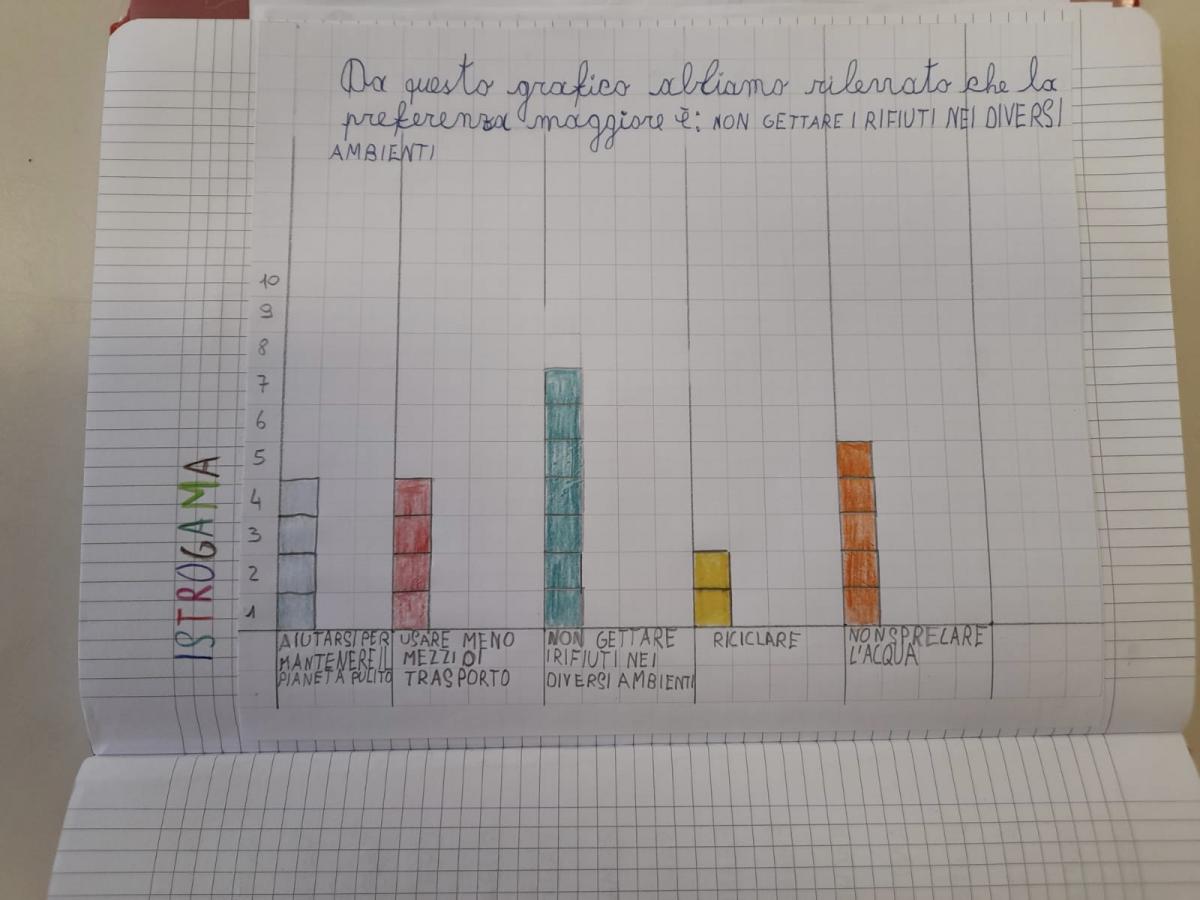 Da questo grafico abbiamo rilevato che la
preferenza maggiore è: NON GETTARE I RIFIUTI NEI DIVERSI
AMBIENTI
10
9
8
7
6
5
4
3
2
1
ISTROGAMA
AIUTARSI PER
MANTENERE IL
PIANETA PULITO
USARE MENO
MEZZI DI
TRASPORTO
NON GETTARE
I RIFIUTI NEI
DIVERSI AMBIENTI
RICICLARE
NON SPRECARE
L'ACQUA